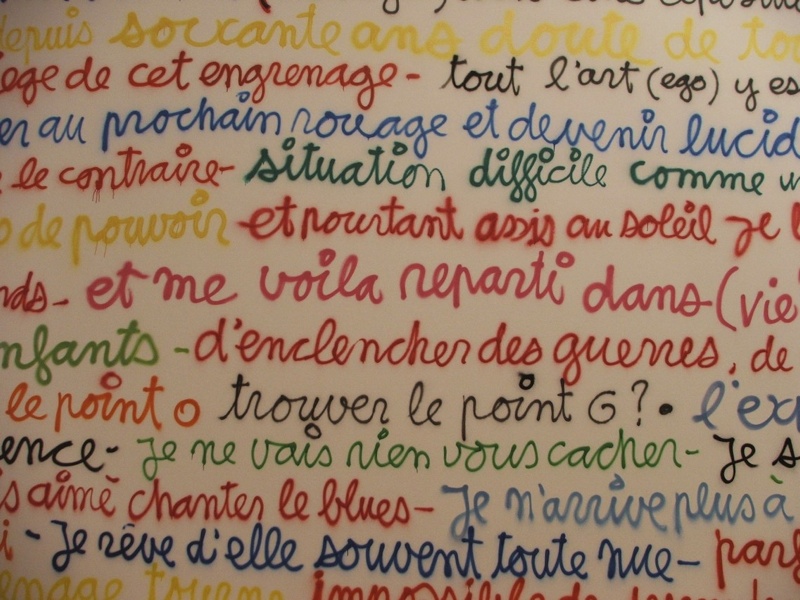 depuis soixante ans doute de tou
ege de cet engrenage - tout l'art (ego) y es
er au prochain rouage et devenir lucid
le contraire - situation difficile comme u
o de pouvoir - et pourtant assis au soleil je l
nds - et me voila reparti dans (vie
nfants - d'enclencher des guerres, de
le point o trouver le point G ? • l'exp
ence - je ne vais rien vous cacher - Je s
s aimè chanter le blues - Je n'arrive plus à
i - Je rêve d'elle souvent toute nue - parf
enage tourne impossible de